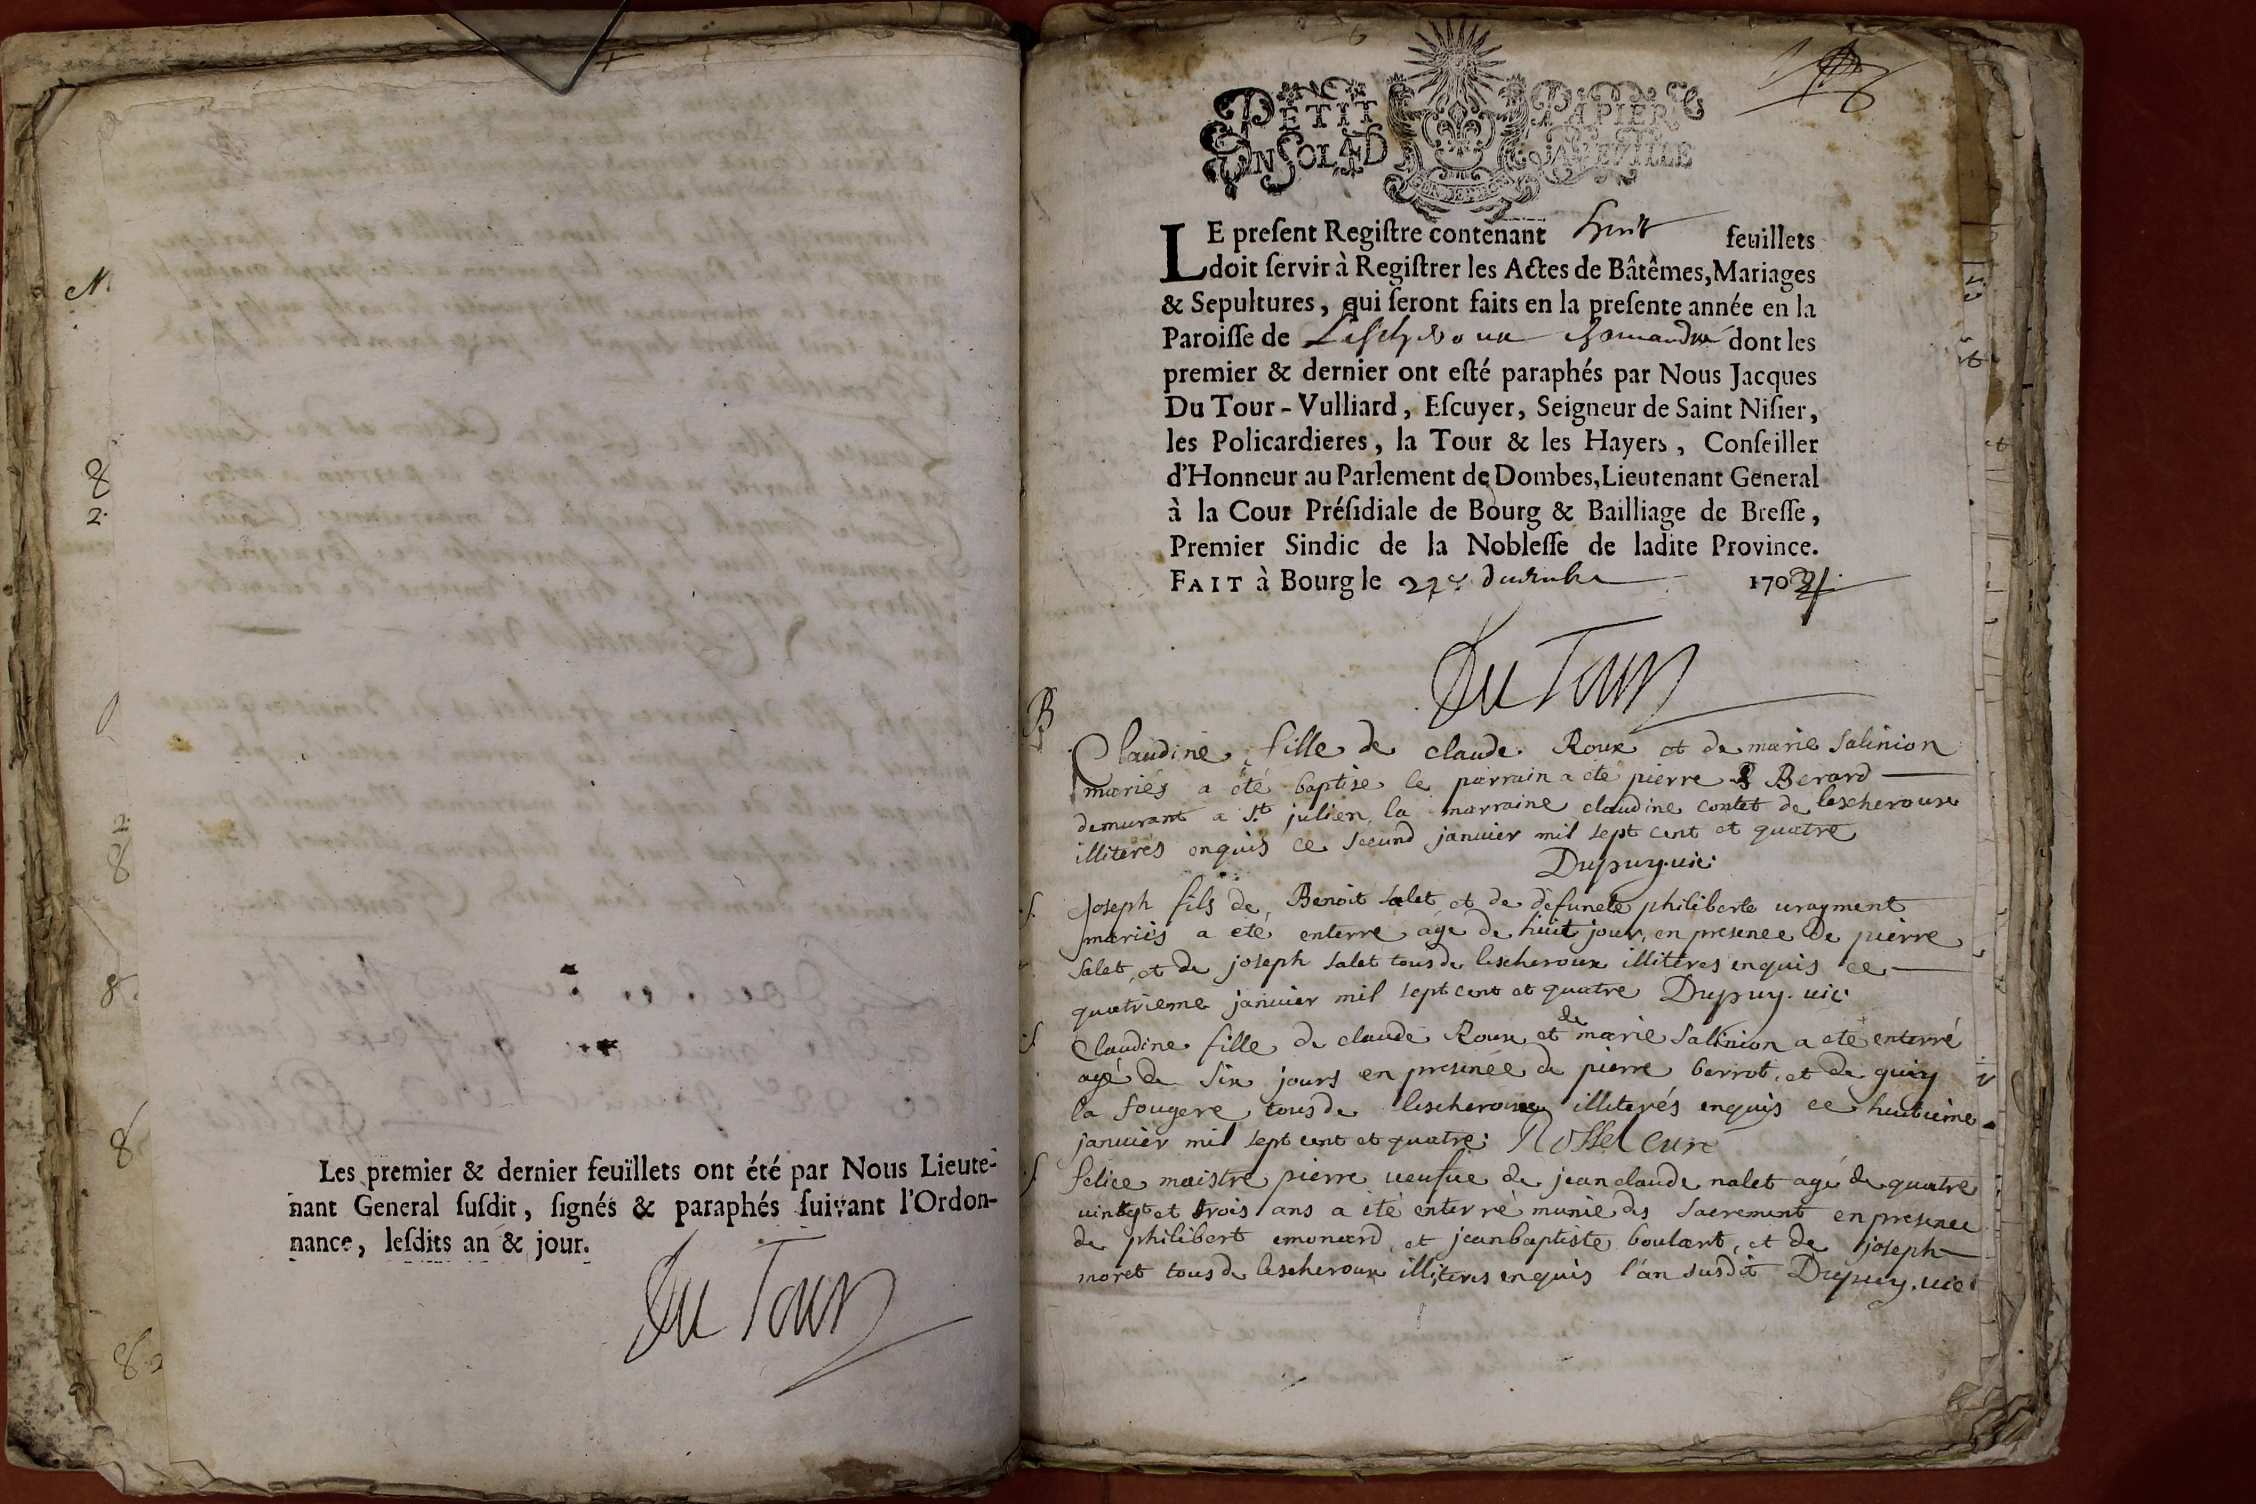 Les premier & dernier feuïllets ont été par Nous Lieute-
nant General suſdit, ſignés & paraphés ſuivant l'Ordon-
nance, leſdits an & jour.
Du Tour
PETIT PAPIER
UN SOL 4 D LA FEVILLE
LE preſent Regiſtre contenant huit feuillets
doit ſervir à Regiſtrer les Actes de Bâtêmes, Mariages
& Sepultures, qui ſeront faits en la preſente année en la
Paroiſſe de Leschroux dont les
premier & dernier ont eſté paraphés par Nous Jacques
Du Tour-Vulliard, Eſcuyer, Seigneur de Saint Niſier,
les Policardieres, la Tour & les Hayers, Conſeiller
d'Honneur au Parlement de Dombes, Lieutenant General
à la Cour Préſidiale de Bourg & Bailliage de Breſſe,
Premier Sindic de la Nobleſſe de ladite Province.
FAIT à Bourg le 170
Du Tour
B
Claudine fille de claude Roux et de marie salinion
mariés a été baptise le parrain a été pierre Berard
demurant a St julien la marraine claudine contet de lescheroux
illiterés enquis ce second janvier mil sept cent et quatre
Dupuy. vic.
S.
Joseph fils de Benoit salet et de defuncte philiberte urayment
mariés a eté enterré agé de huit jour, en presence de pierre
salet, et de joseph salet tous de lescheroux illiteres enquis ce
quatrieme janvier mil sept cent et quatre Dupuy. vic.
S
Claudine fille de claude Roux et de marie salinion a eté enterré
agé de six jours en presence de pierre berrot, et de guiy
la fougere tous de lescheroux illiterés enquis ce huitieme
janvier mil sept cent et quatre. Rosset curé
S
felice maistre pierre ueufue de jean claude nalet agé de quatre
uingt et trois ans a été enterré munie des sacrement en presence
de philibert emonard, et jean baptiste boulart, et de joseph
moret tous de lescheroux illiteres enquis l'an susdit Dupuy. vic